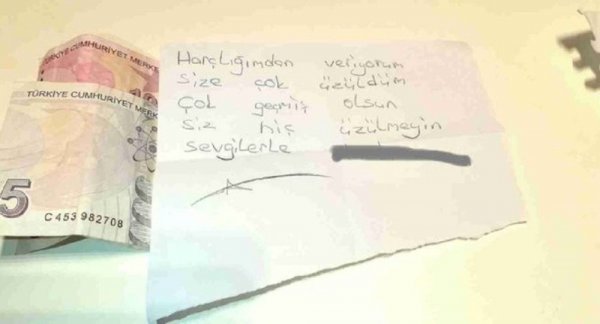 TÜRKİYE CUMHURİYET MERKE
TÜRKİYE CUMHURİYET MERKE
5
C453982708
Harçlığımdan veriyorum
Size çok üzüldüm
Çok geçmiş olsun
Siz hiç üzülmeyin
Sevgilerle